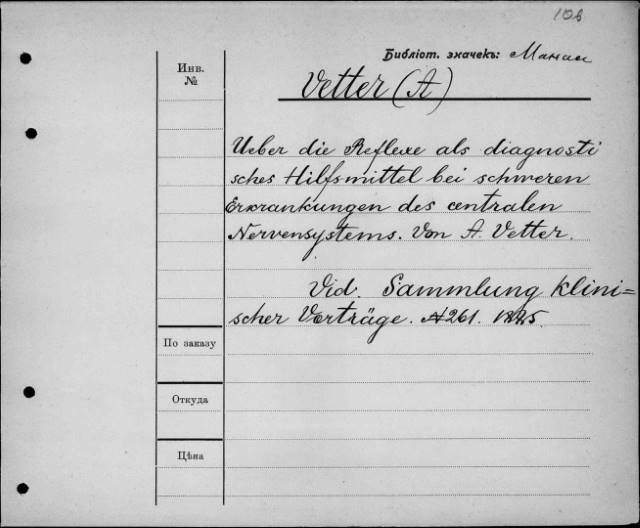 108
Библіот. значекъ:
Инв.
№
Vetter (A)
Ueber die Reflexe als diagnosti
sches Hilfsmittel bei schweren
Erkrankungen des centralen
Nervensystems. Von A. Vetter.
Vid. Sammlung klini=
scher Vorträge. № 261.
По заказу
Откуда
Цѣна